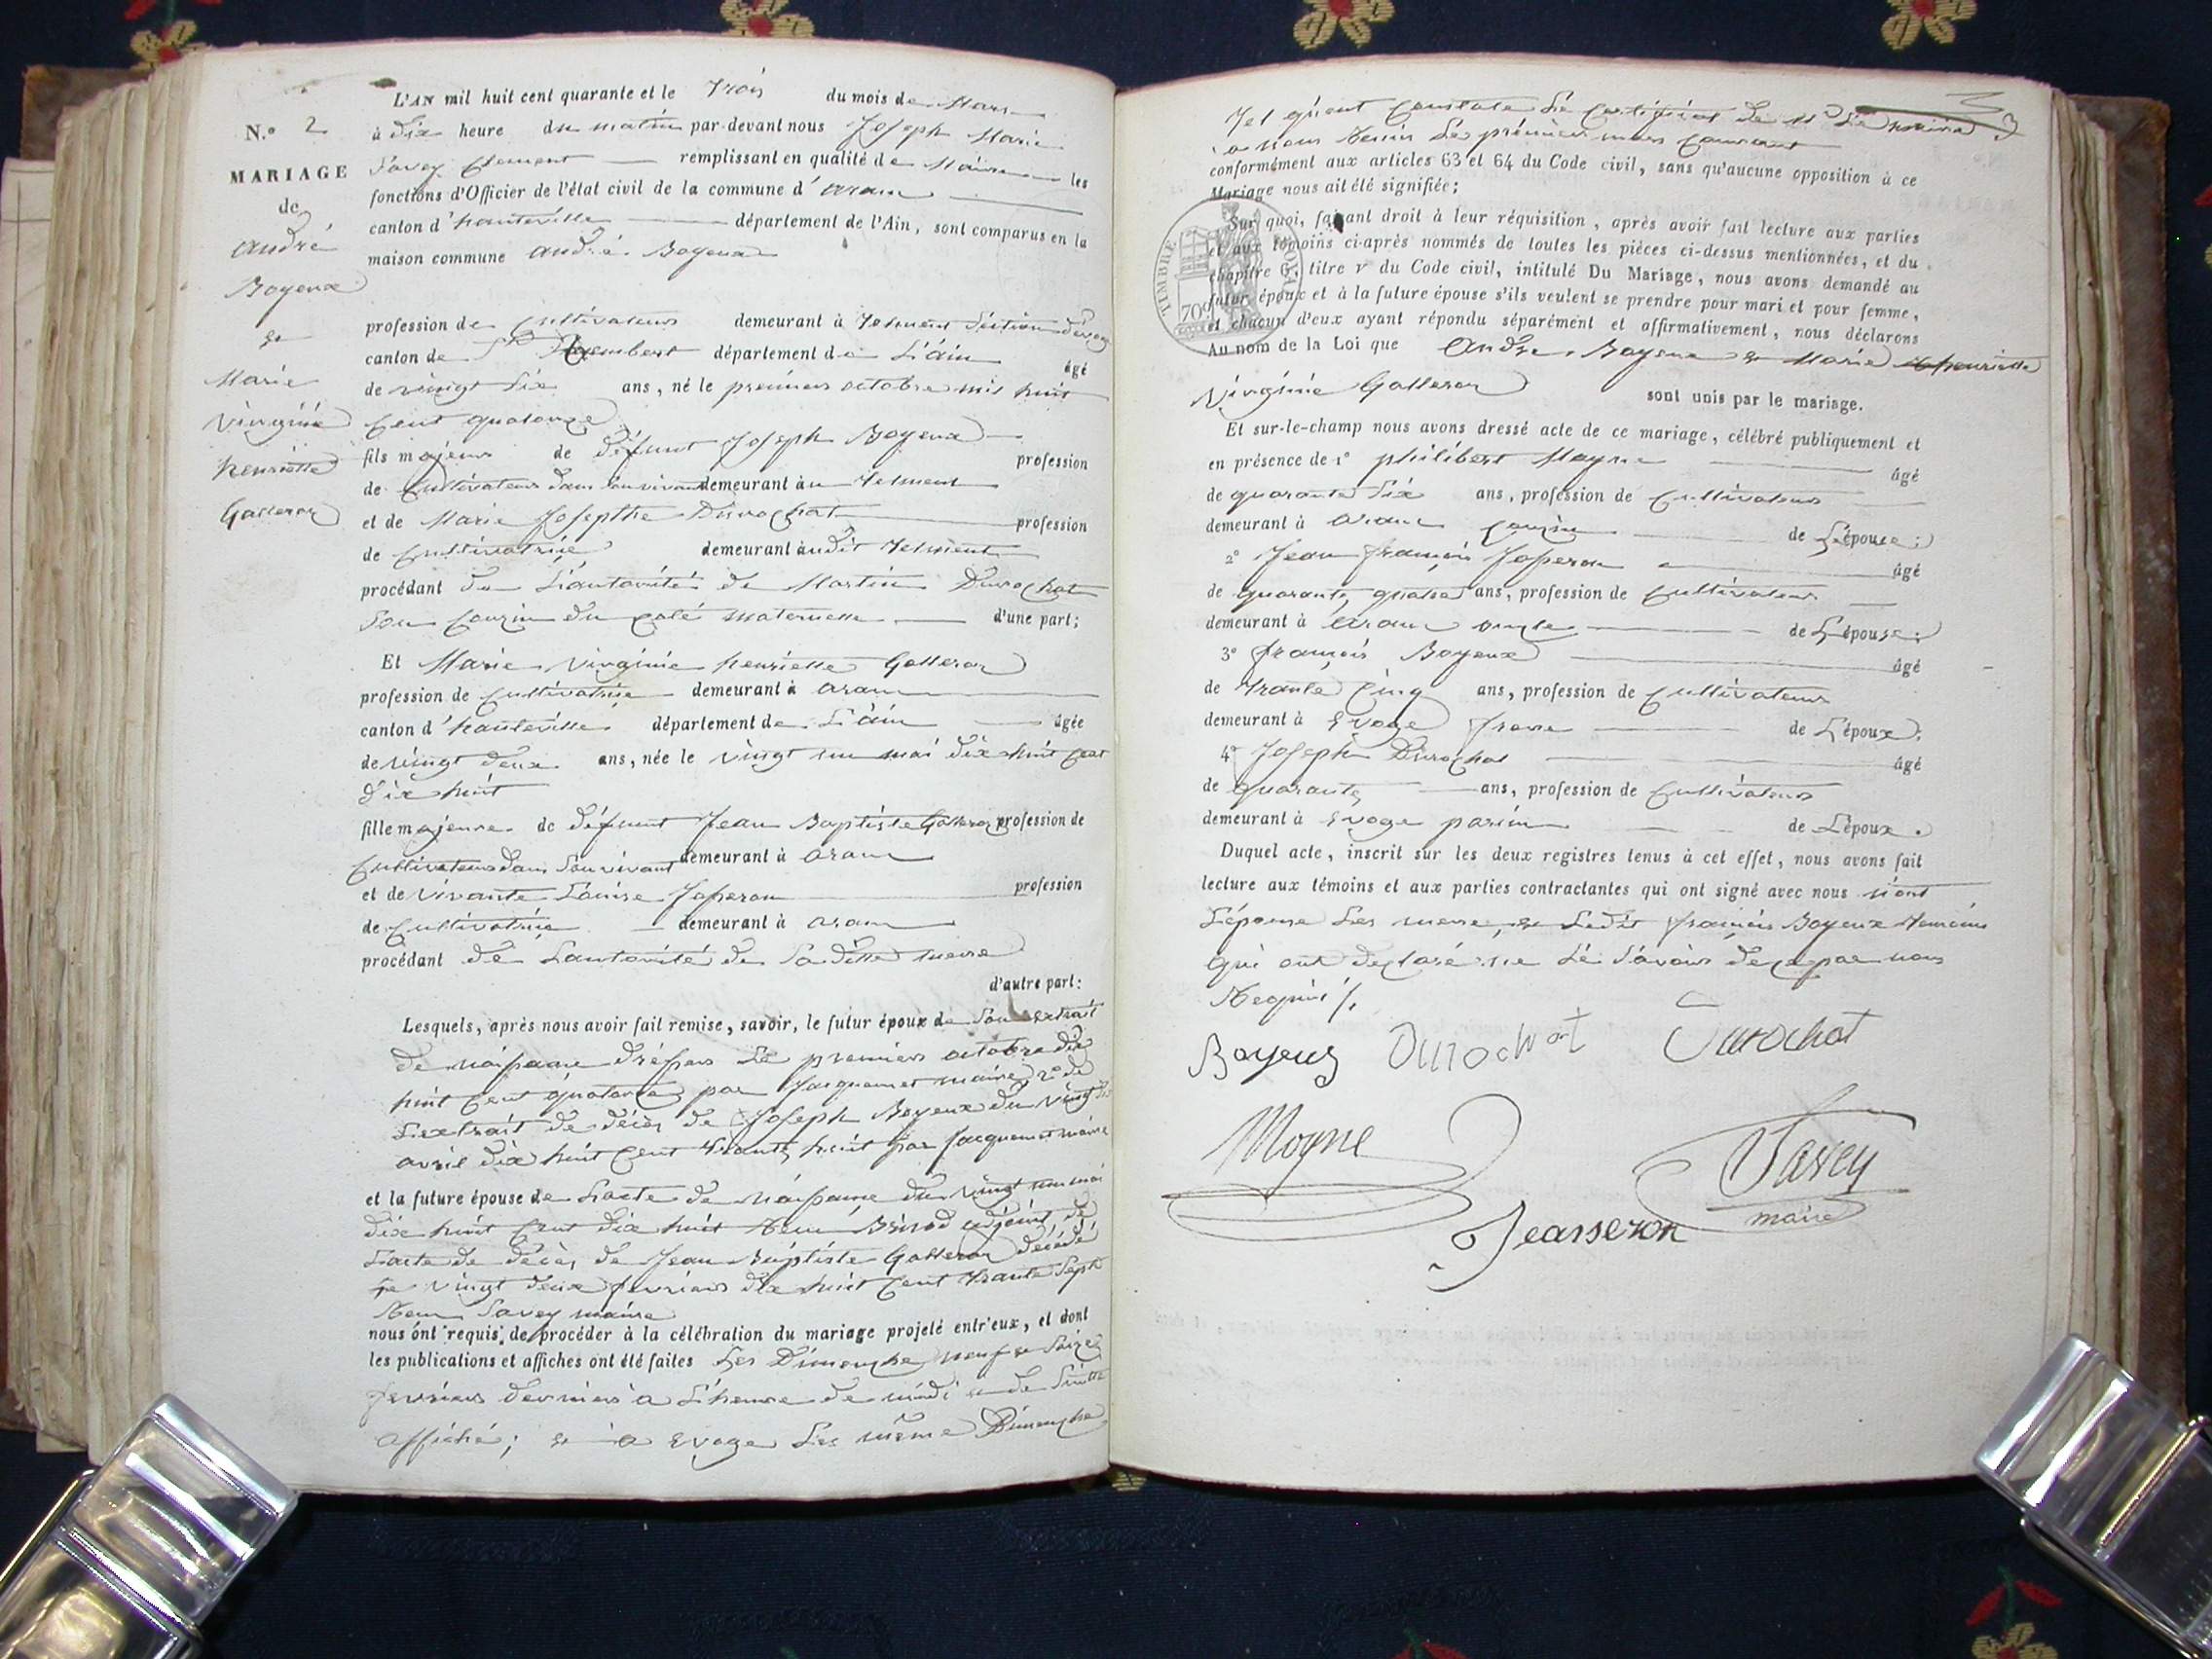 N.º 2
MARIAGE
de
André
Boyeux
et
Marie
Virginie
henriette
Galleron
L'AN mil huit cent quarante et le trois du mois de Mars
à dix heure du matin par-devant nous Joseph Marie
Savey Clement remplissant en qualité de Maire les
fonctions d'Officier de l'état civil de la commune d' aranc
canton d' hauteville département de l'Ain, sont comparus en la
maison commune andré Boyeux
profession de Cultivateur demeurant à
canton de St Rembert département de L'ain âgé
de vingt six ans, né le premier octobre mil huit
cent quatorze
fils majeur de défunt Joseph Boyeux profession
de Cultivateur dans son vivant demeurant à
et de Marie Josephte Durochat profession
de Cultivatrice demeurant audit
procédant de L'autorité de Martin Durochat
son couzin du coté maternelle d'une part;
Et Marie Virginie henriette Galleron
profession de Cultivatrice demeurant à aranc
canton d' hauteville département de L'ain âgée
de vingt deux ans, née le vingt un mai dix huit cent
dix huit
fille majeure de défunt Jean Baptiste Galleron profession de
Cultivateur dans son vivant demeurant à aranc
et de vivante Louise Joseron profession
de Cultivatrice demeurant à aranc
procédant de Lautorité de sa ditte mere
d'autre part:
Lesquels, après nous avoir fait remise, savoir, le futur époux de son extrait
de naissance dréssée Le premier octobre dix
huit cent quatorze par Jacquemet maire, 2º de
L'extrait de décès de Joseph Boyeux du vingt
avril dix huit cent trante huit par Jacquemet maire
et la future épouse de L'acte de naissance du vingt un mai
dix huit cent dix huit Reçu Brirod adjoint de
L'acte de décès de Jean Baptiste Galleron décédé
le vingt deux fevrier dix huit cent trante sept
Reçu Savey maire
nous ont requis de procéder à la célébration du mariage projeté entr'eux, et dont
les publications et affiches ont été faites Les Dimenche neuf et seize
fevrier dernier a L'heure de midi et de suitte
affiché; et a Evoge Les même Dimenche
tel quent constate Le certificat de Mr Le maire
a nous Remis Le premier mars courant
conformément aux articles 63 et 64 du Code civil, sans qu'aucune opposition à ce
Mariage nous ait été signifiée;
Sur quoi, faisant droit à leur réquisition, après avoir fait lecture aux parties
et aux témoins ci-après nommés de toutes les pièces ci-dessus mentionnées, et du
chapitre 6, titre v du Code civil, intitulé Du Mariage, nous avons demandé au
futur époux et à la future épouse s'ils veulent se prendre pour mari et pour femme,
et chacun d'eux ayant répondu séparément et affirmativement, nous déclarons
Au nom de la Loi que André Boyeux et Marie henriette
Virginie Galleron sont unis par le mariage.
TIMBRE ROYAL
70c
Et sur-le-champ nous avons dressé acte de ce mariage, célébré publiquement et
en présence de 1º philibert Moyne âgé
de quarante six ans, profession de Cultivateur
demeurant à aranc couzin de L'épouse;
2º Jean françois Joseron âgé
de quarante quatre ans, profession de Cultivateur
demeurant à aranc oncle de L'épouse;
3º françois Boyeux âgé
de trante cinq ans, profession de Cultivateur
demeurant à Evoge frere de L'époux;
4º Joseph Durochat âgé
de quarante ans, profession de Cultivateur
demeurant à Evoge parin de L'époux.
Duquel acte, inscrit sur les deux registres tenus à cet effet, nous avons fait
lecture aux témoins et aux parties contractantes qui ont signé avec nous n'ont
L'épouse Les mere, et Ledit françois Boyeux temoins
qui ont declaré ne Le savoir de ce par nous
Requis /.
Boyeux Durochat Durochat
Moyne Savey
maire
Jeasseron